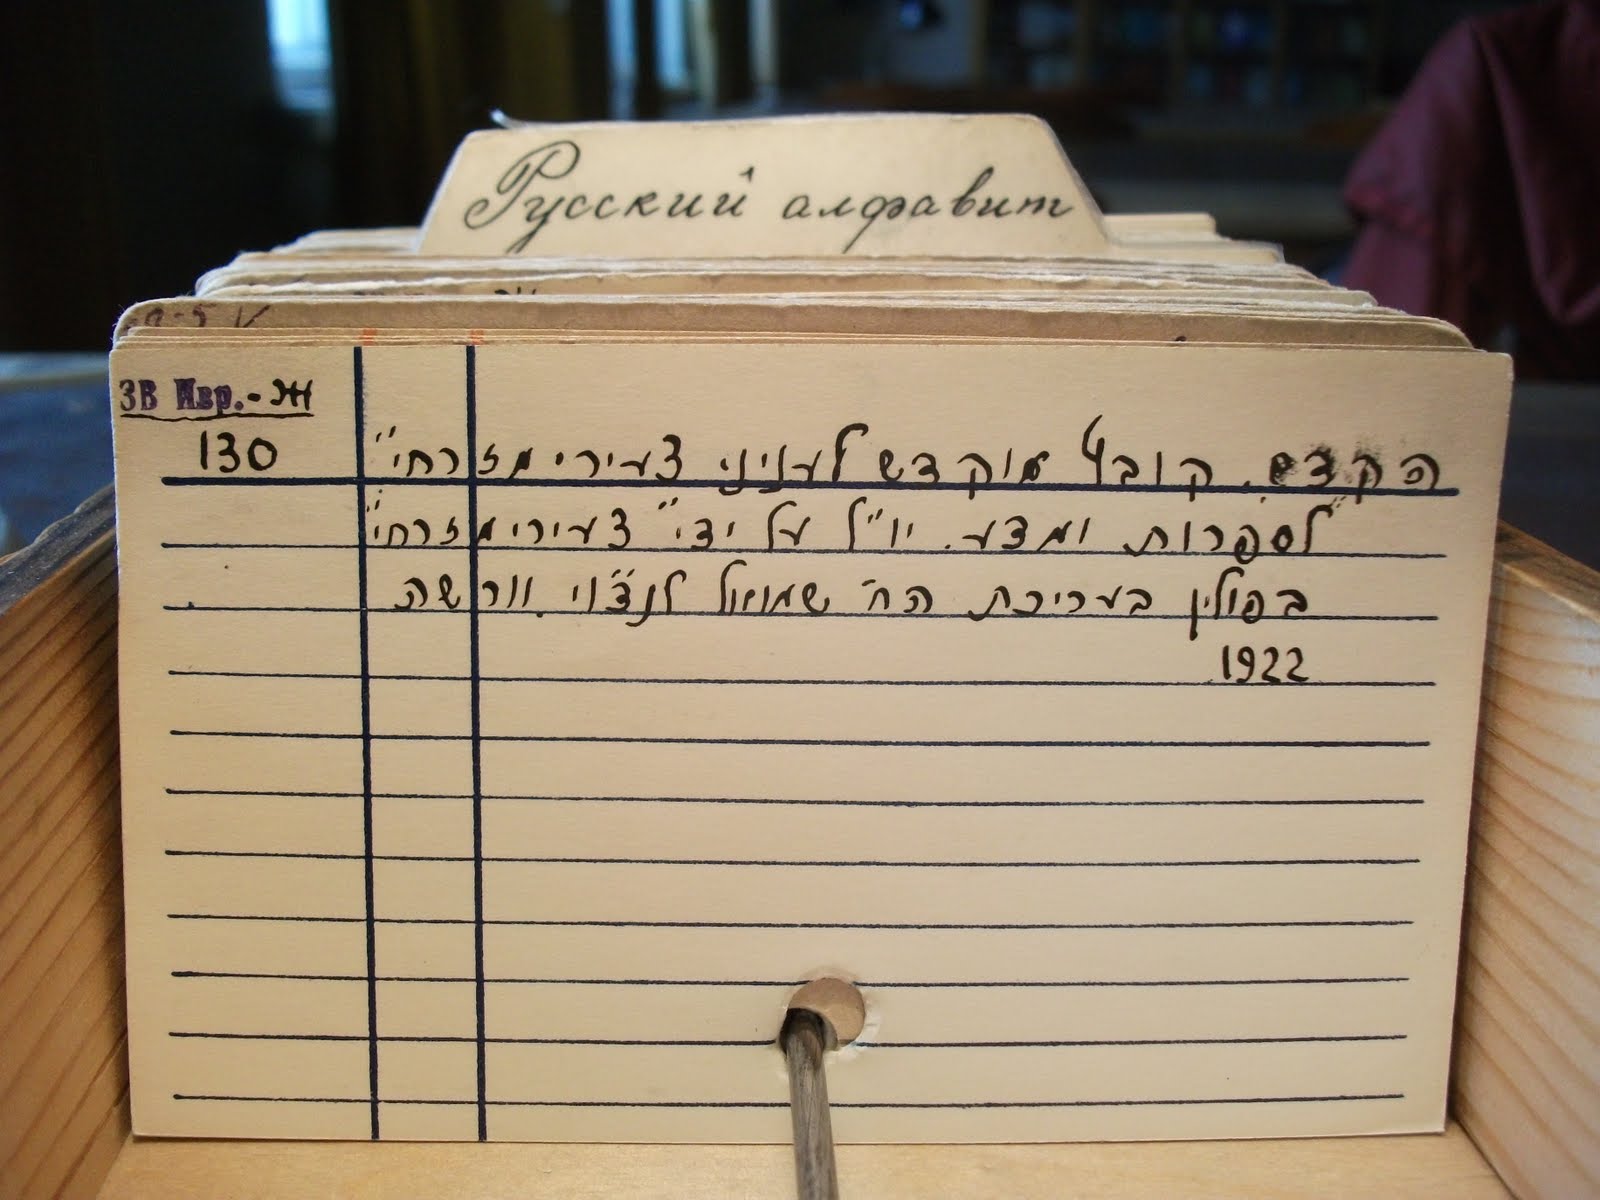 Русский алфавит
ЗВ Ивр.-Ж
130
הקדם. קובץ מוקדש לעניני צעירי מזרחי"
לספרות ומדע. יו"ל על ידי "צעירי מזרחי"
בפולין בעריכת הח' שמואל לנצ'וי. וורשה
1922